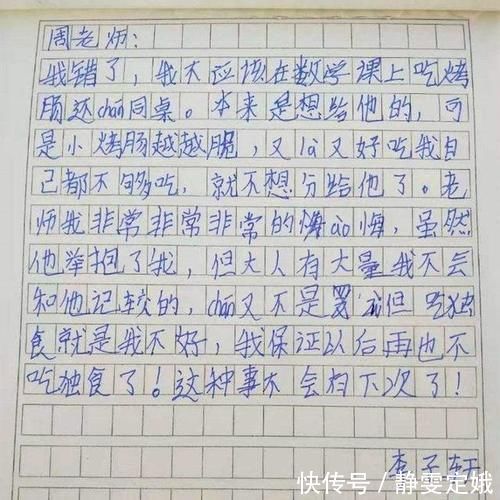 周老师:
我错了，我不应该在数学课上吃烤
肠还chán同桌。本来是想给他的，可
是小烤肠越越脆，又là又好吃我自
己都不够吃，就不想分给他了。老
师我非常非常非常的懊ào悔，虽然
他举抱了我，但大人有大量我不会
和他记较的，chán又不是罗但吃独
食就是我不好，我保证以后再也不
吃独食了！这种事不会有下次了！
李子轩
快传号／静雯定娥